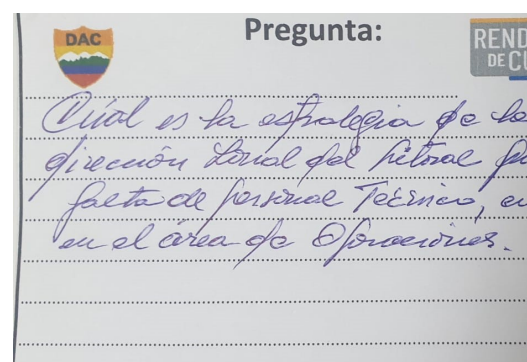 DAC
Pregunta:
REND
DE CU
Cuál es la estrategia de la
dirección Zonal del Litoral
falta de personal Técnico, en
en el área de Operaciones.